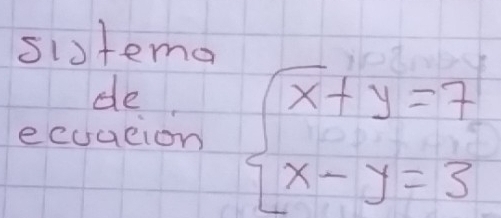 sistema
de
ecuación
x + y = 7
x - y = 3